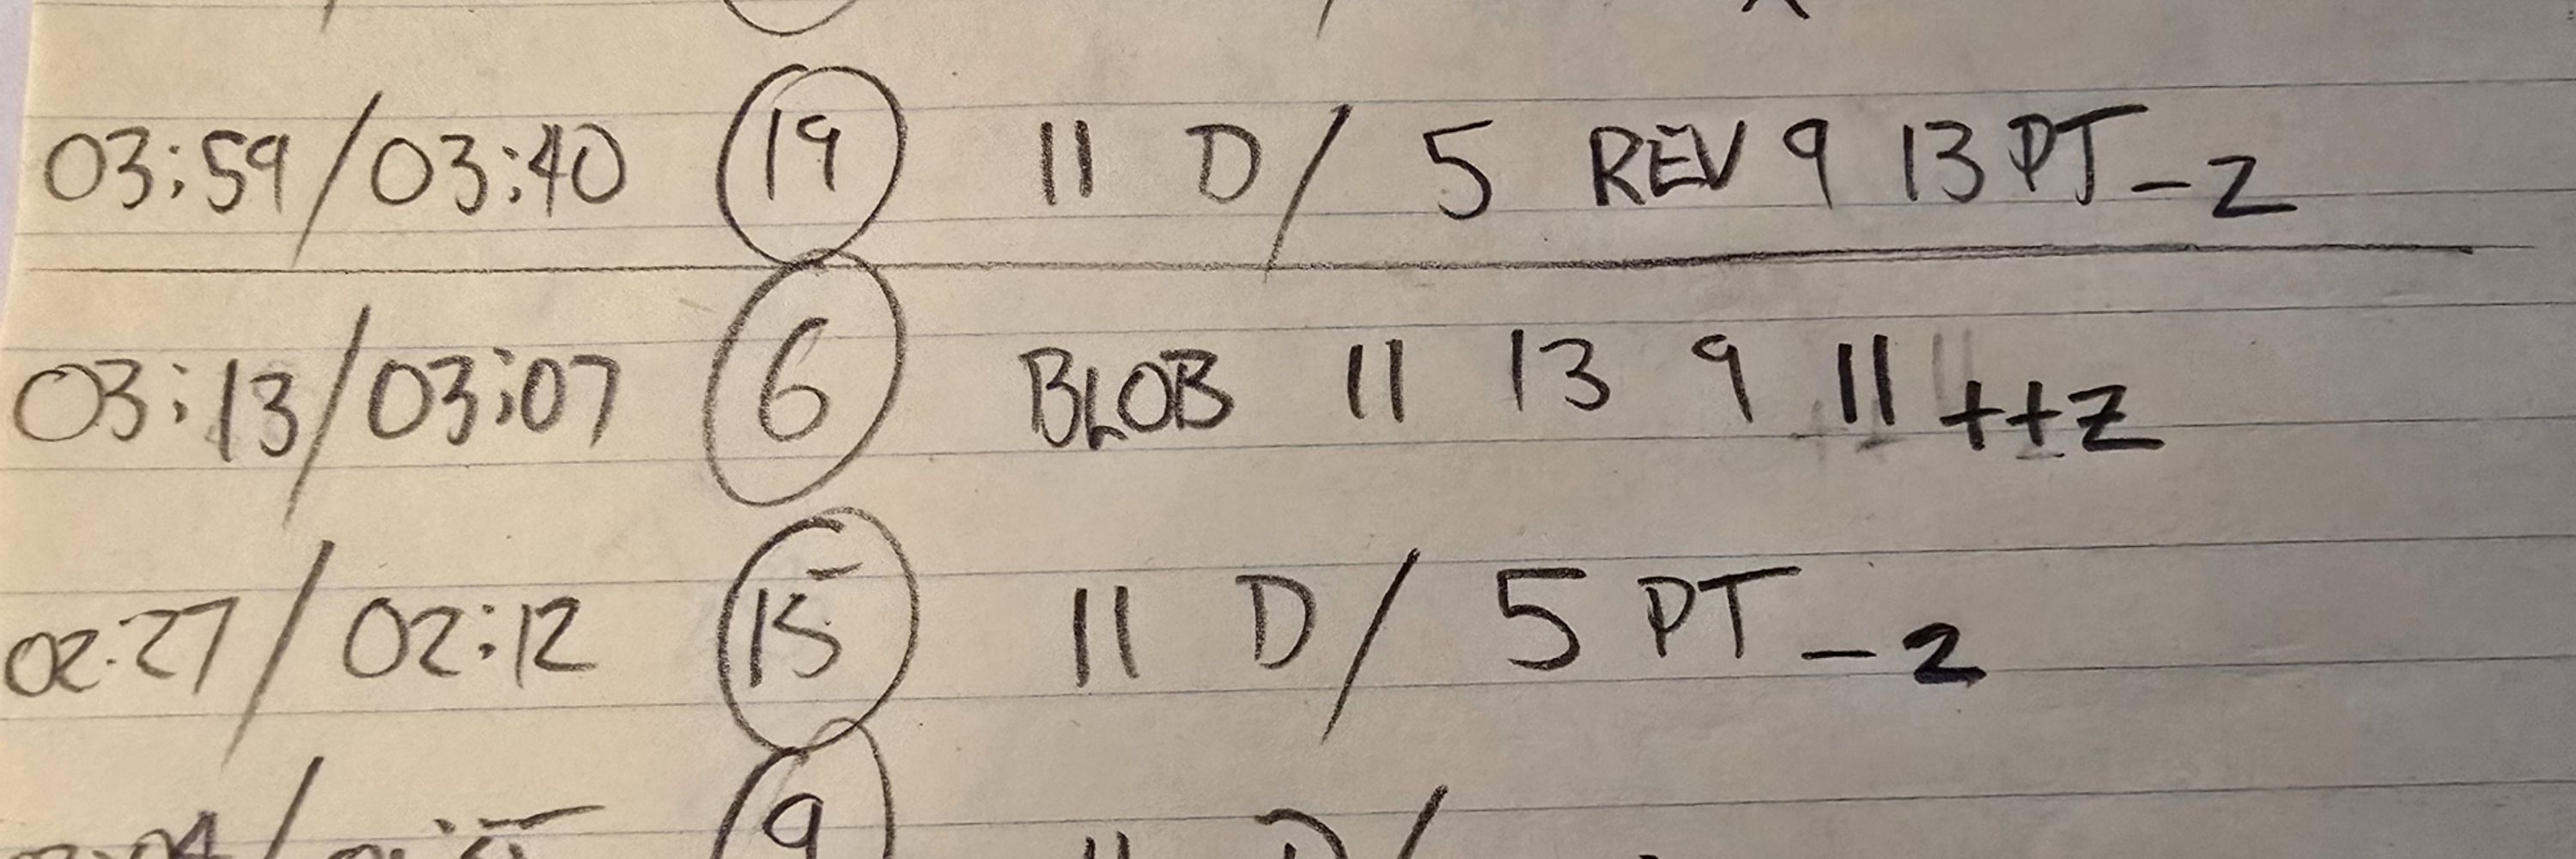 03:59/03:40 19 11 D/ 5 REV 9 13 PT -2
03:13/03:07 6 BLOB 11 13 9 11 ++Z
02:27/02:12 15 11 D/ 5 PT -2
9 11 D/